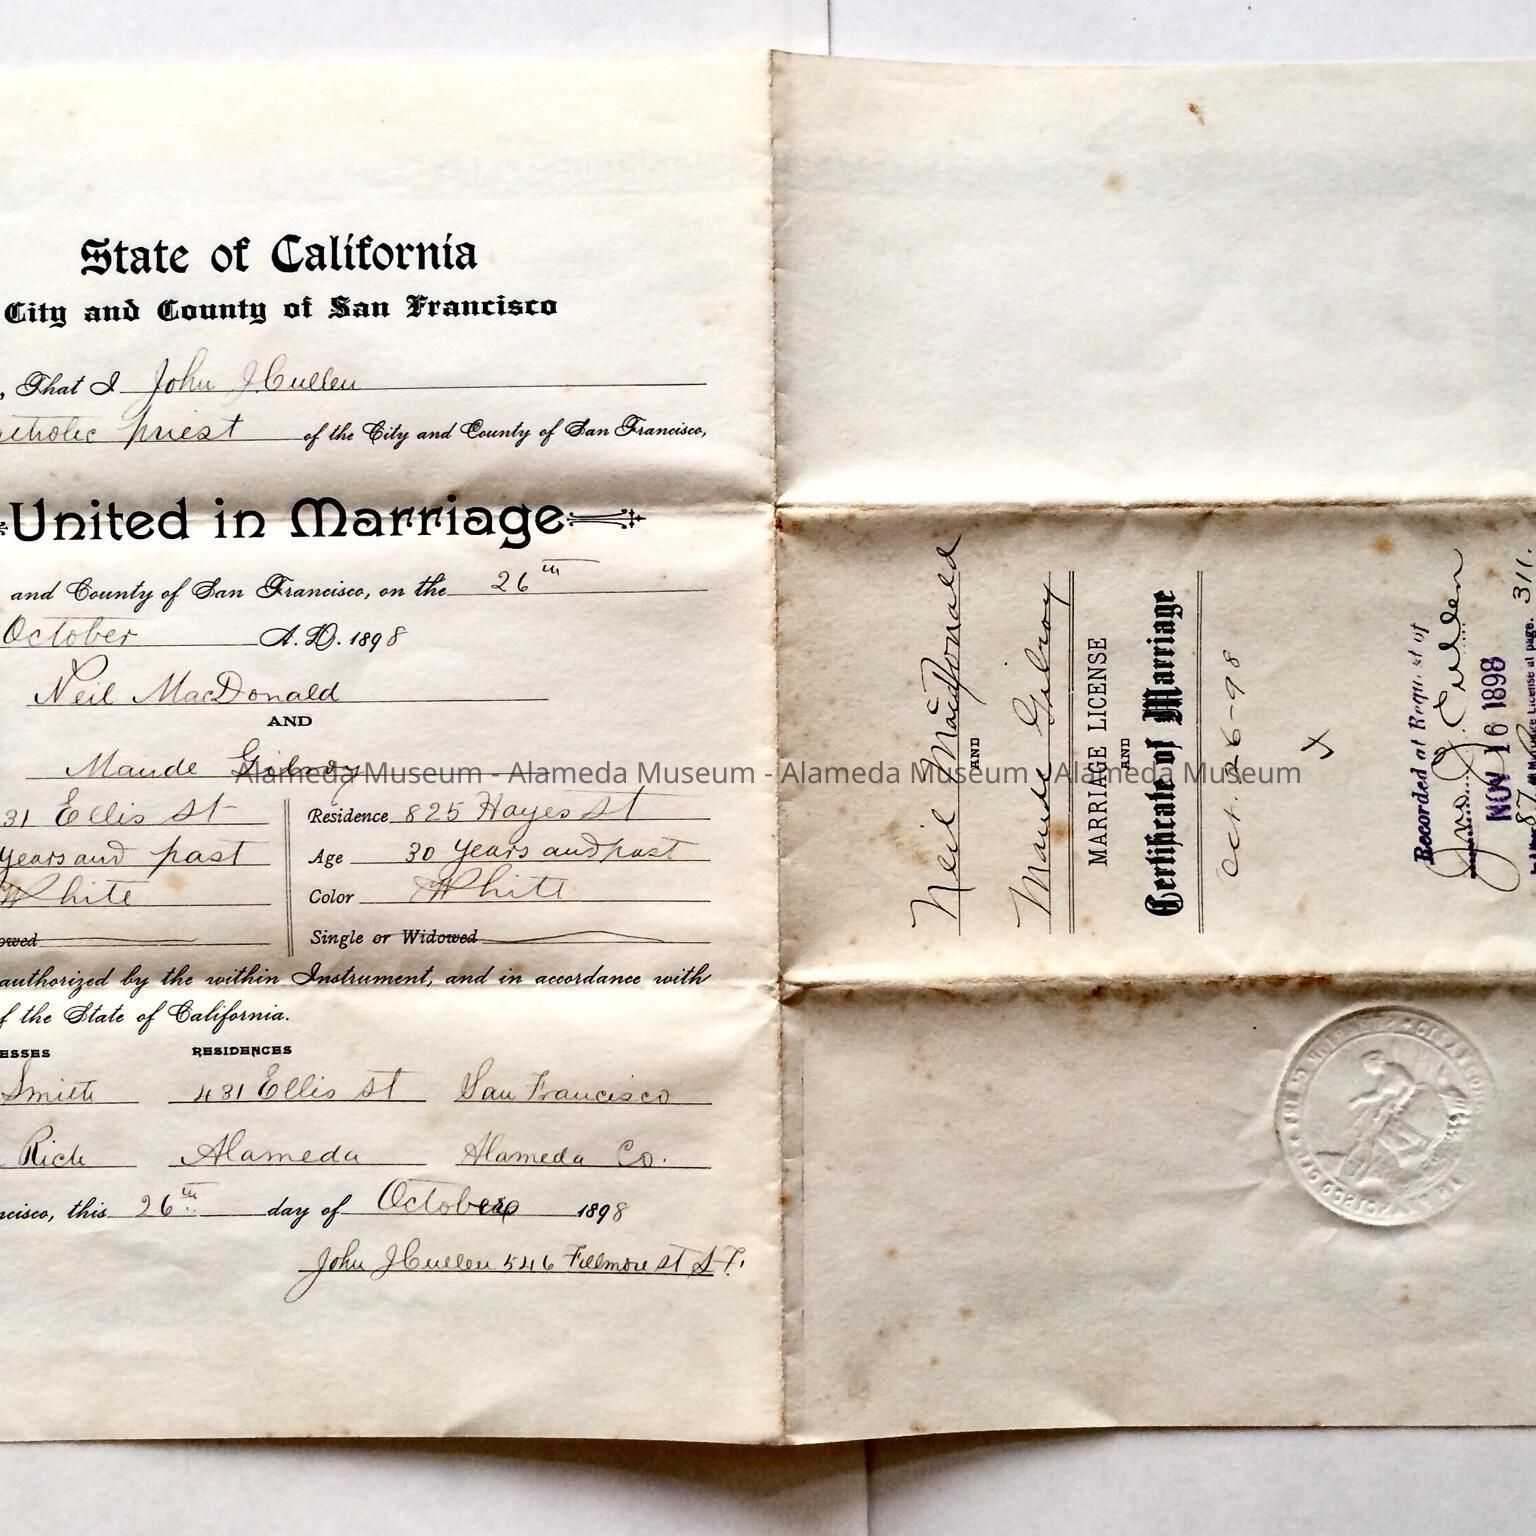 State of California
City and County of San Francisco
, That I John J. Cullen
atholic priest of the City and County of San Francisco,
United in Marriage
and County of San Francisco, on the 26th
October A.D. 1898
Neil MacDonald
AND
Maude Gilroy
Alameda Museum - Alameda Museum - Alameda Museum - Alameda Museum
31 Ellis St Residence 825 Hayes St
years and past Age 30 years and past
White Color White
owed Single or Widowed
authorized by the within Instrument, and in accordance with
f the State of California.
ESSES RESIDENCES
Smith 431 Ellis St San Francisco
Rich Alameda Alameda Co.
ncisco, this 26th day of October 1898
John J Cullen 546 Fillmore St S.F.
Neil MacDonald
AND
Maude Gilroy
MARRIAGE LICENSE
AND
Certificate of Marriage
Oct. 26-98
x
Recorded at Request of
Jno. J. Cullen
NOV 16 1898
87 License at page. 311.